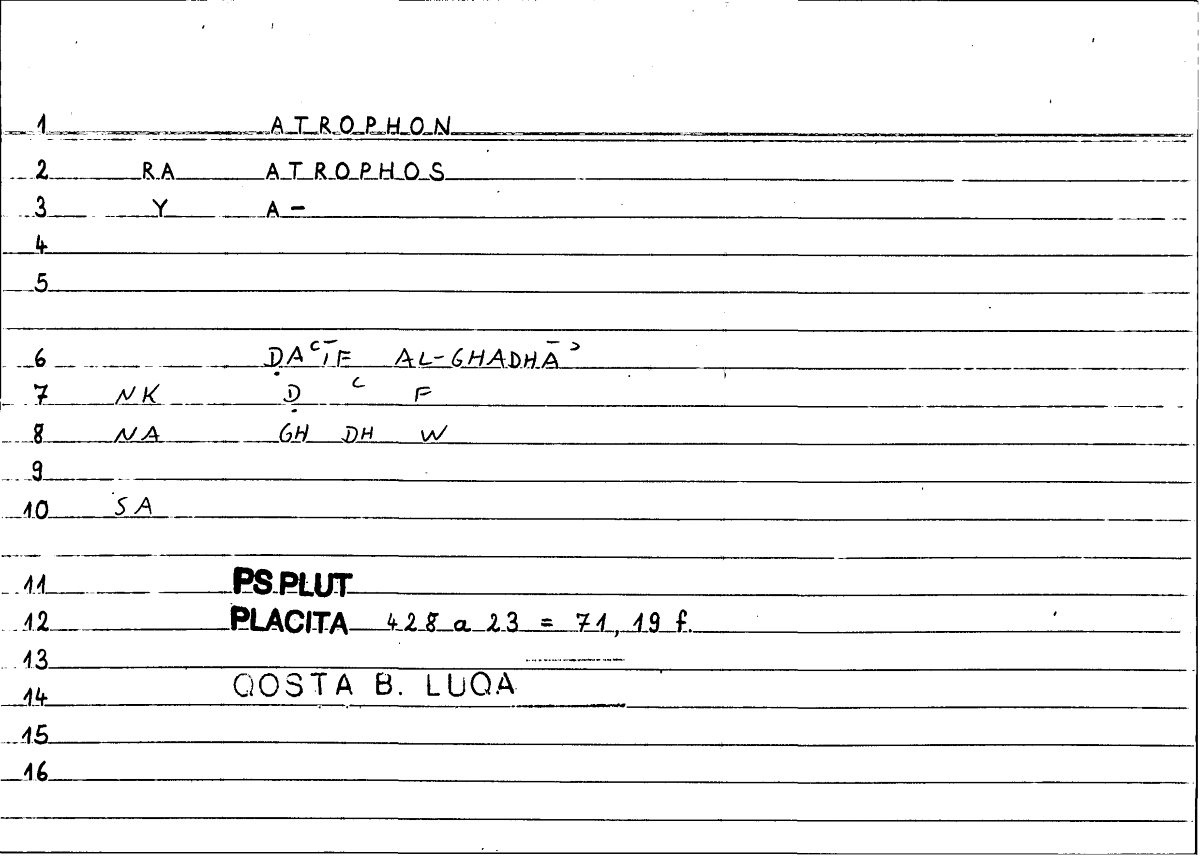 1 ATROPHON
2 RA ATROPHOS
3 Y A-
4
5
6 ḌAʿĪF AL-GHADHĀʾ
7 NK Ḍ ʿ F
8 NA GH DH W
9
10 SA
11 PS.PLUT
12 PLACITA 428 a 23 = 71, 19 f.
13
14 QOSTA B. LUQA
15
16